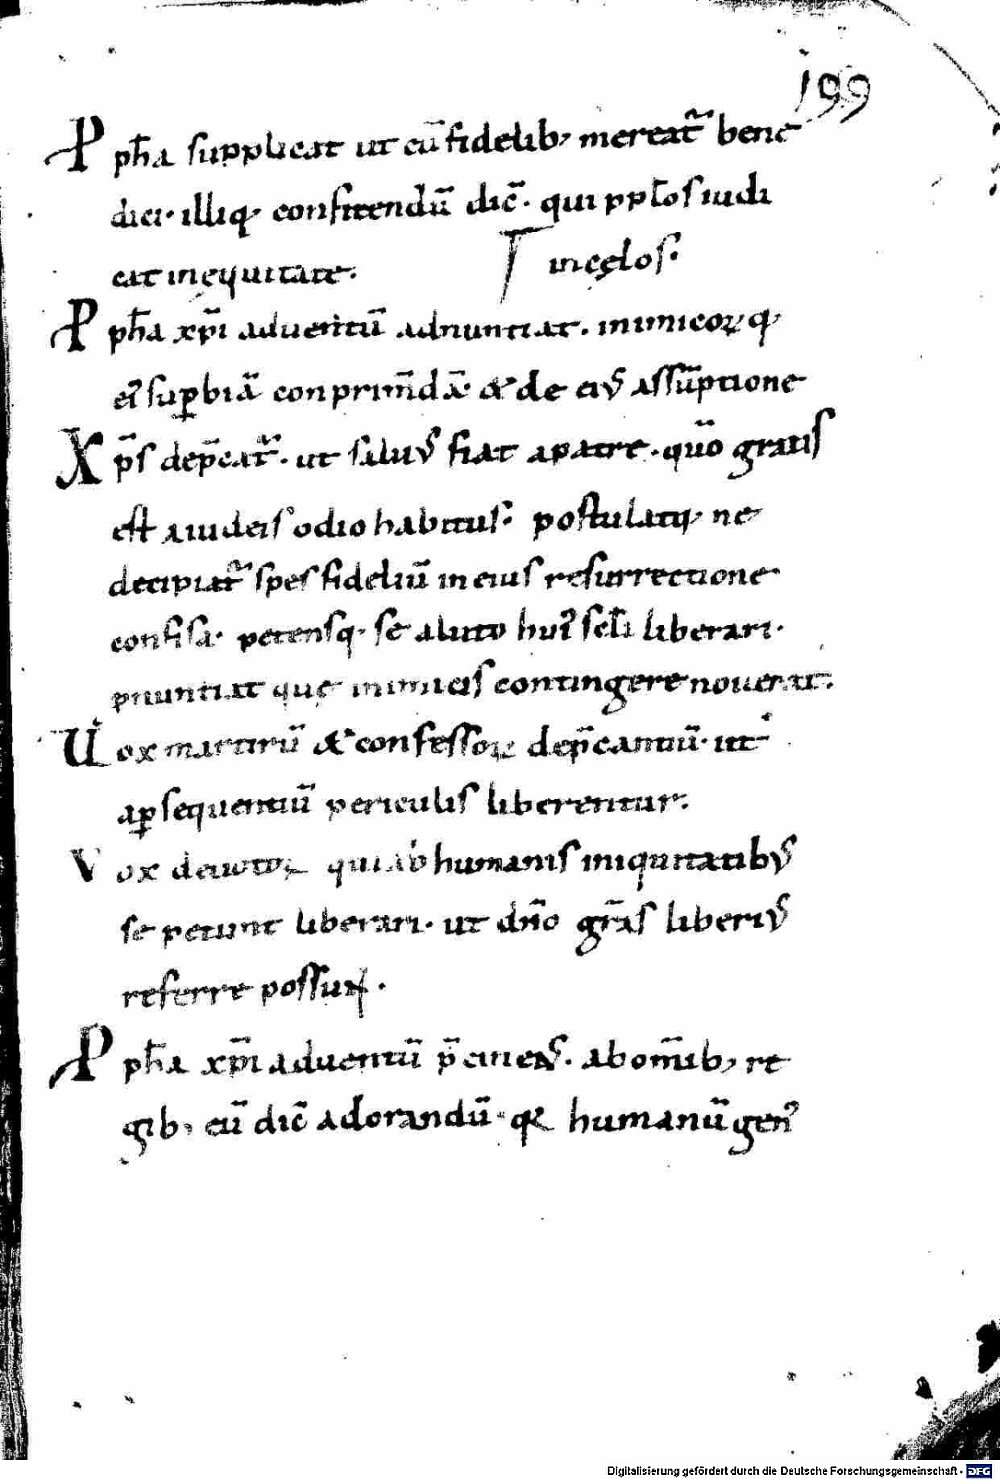 199
P ph̅a supplicat ut cu̅ fidelib; mereat᷑ bene
dici. illiq; confitendu̅ dic̅. qui pp̅l̅os iudi
cat in ęquitate.
in cęlos.
P ph̅a xp̅i aduentu̅ adnuntiat. inimicoꝝ q;
et᷑ sup̱bia̅ conprim̅da̅ & de eiꝰ assu̅ptione
X p̅s dep̅cat᷑. ut saluꝰ fiat a patre. quo̅ gratis
est a iudeis odio habitus. postulatq; ne
decipiat᷑ spes fideliu̅ in eius resurrectione
confisa. petensq; se a luto hui᷑ scl̅i liberari.
p̅nuntiat quę inimicis contingere nouerat.
U ox martiru̅ & confessoꝝ dep̅cantiu̅. ut
a ꝑsequentiu̅ periculis liberentur.
V ox deuotoꝝ qui ab humanis iniquitatibꝰ
se petunt liberari. ut dn̅o gr̅as liberiꝰ
referre possunt.
P ph̅a xp̅i aduentu̅ p̅cinens. ab om̅ib; re
gib; eu̅ dic̅ adorandu̅. quia humanu̅ gen᷑
Digitalisierung gefördert durch die Deutsche Forschungsgemeinschaft - DFG